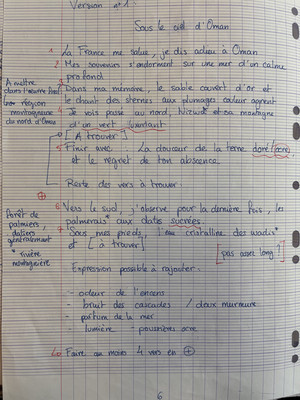 Version n°1
Sous le ciel d'Oman
1 La France me salue, je dis adieu à Oman
2 Mes souvenirs s'endorment sur une mer d'un calme
profond
3 Dans ma mémoire, le sable couvert d'or et
le chant des sternes aux plumages couleur argent
4 Je vois passé au nord, Nizwa* et sa montagne
d'un vert
[A trouver]
5 Finir avec: La douceur de ta terre doré (ocre)
et le regret de ton absence.
Reste des vers à trouver
A mettre
dans l'autre
* région
montagneuse
du nord d'Oman
⊕
6 Vers le sud, j'observe pour la dernière fois, les
palmerais* aux dates sucrées.
7 Sous mes pieds, l'eau cristalline des wadis*
et [à trouver]
[pas assez long?]
Forêt de
palmiers,
dattiers
généralement
* rivière
montagnarde
Expression possible à rajouter:
- odeur de l'encens
- bruit des cascades / doux murmure
- parfum de la mer
- lumière - poussières ocre
Faire au moins 4 vers en ⊕
6